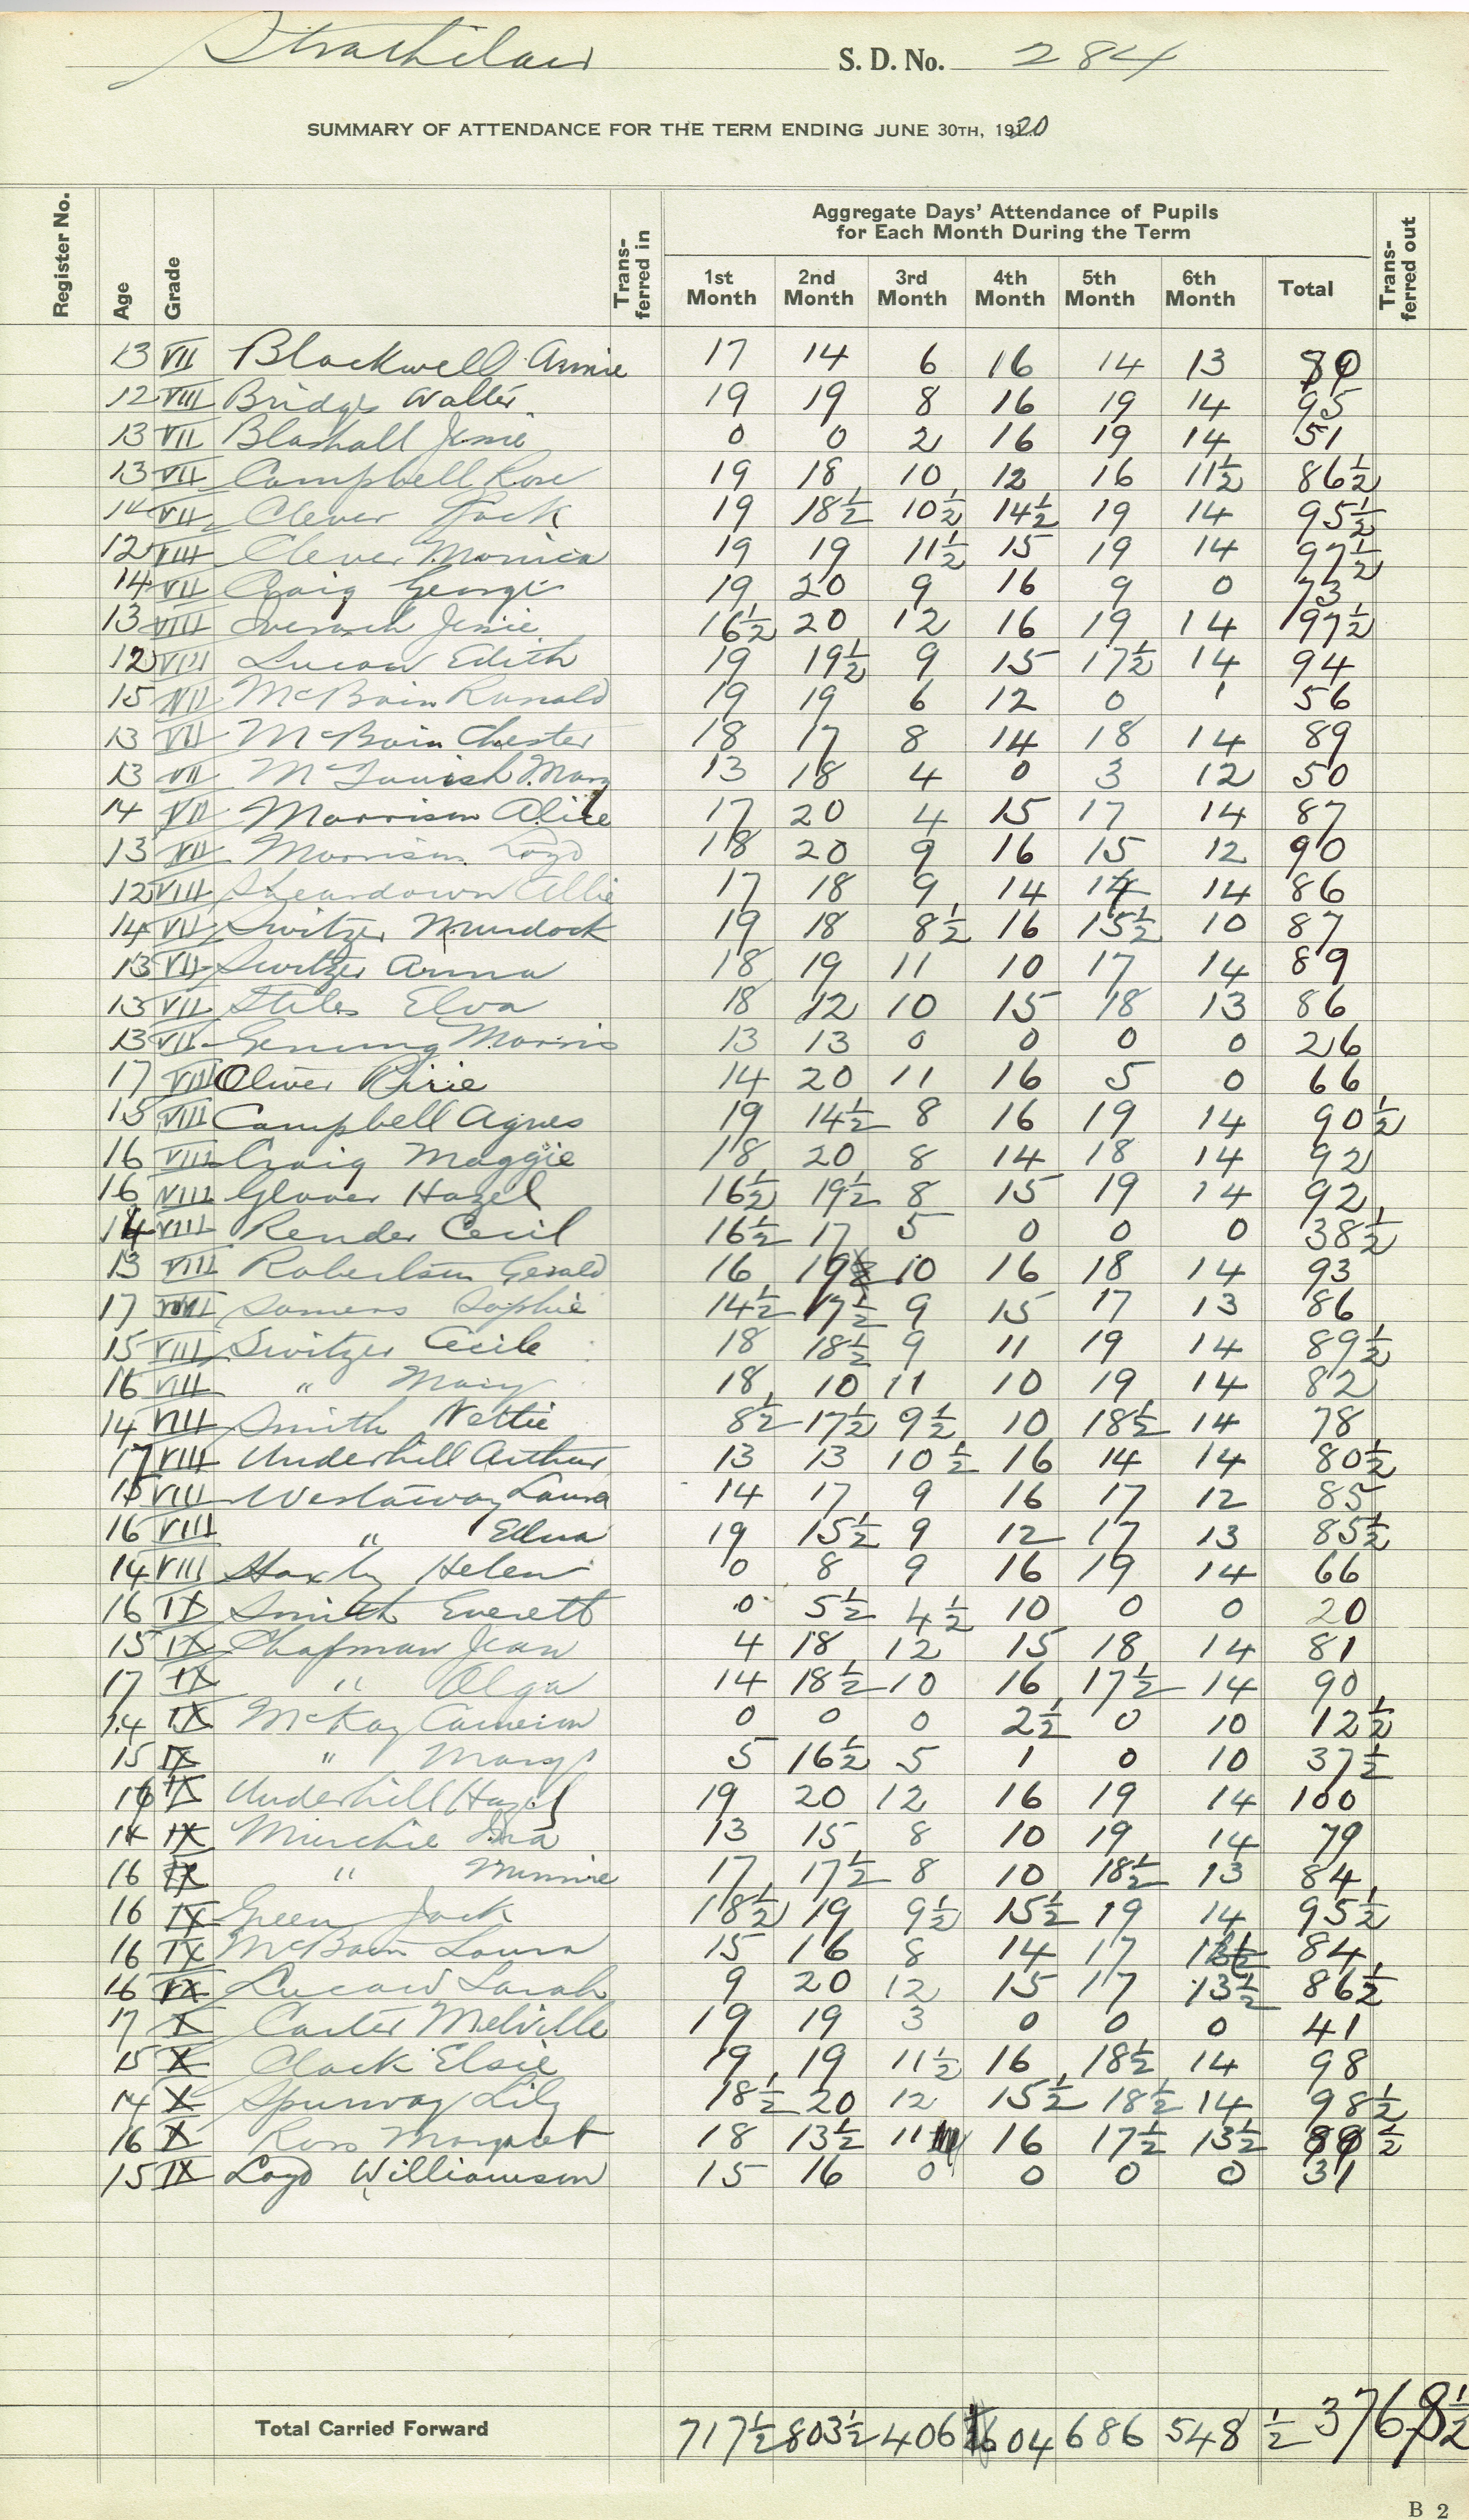 Strathclair S. D. No. 284
SUMMARY OF ATTENDANCE FOR THE TERM ENDING JUNE 30TH, 1920
Register No. Age Grade Trans-ferred in Aggregate Days' Attendance of Pupils for Each Month During the Term Trans-ferred out
1st Month 2nd Month 3rd Month 4th Month 5th Month 6th Month Total
13 VII Blackwell Annie 17 14 6 16 14 13 80
12 VIII Bridge Walter 19 19 8 16 19 14 95
13 VII Blashall Jessie 0 0 2 16 19 14 51
13 VII Campbell Rose 19 18 10 12 16 11½ 86½
14 VII Clever Jack 19 18½ 10½ 14½ 19 14 95½
12 VIII Clever Monica 19 19 11½ 15 19 14 97½
14 VII Craig George 19 20 9 16 9 0 73
13 VIII Jessie 16½ 20 12 16 19 14 97½
12 VIII Lucow Edith 19 19½ 9 15 17½ 14 94
15 VII McBain Ronald 19 19 6 12 0 1 56
13 VII McBain Chester 18 17 8 14 18 14 89
13 VII McTavish Mary 13 18 4 0 3 12 50
14 VII Morrison Alice 17 20 4 15 17 14 87
13 VII Morrison Loyd 18 20 9 16 15 12 90
12 VIII Sheardown Allie 17 18 9 14 14 14 86
14 VII Switzer Murdock 19 18 8½ 16 15½ 10 87
13 VII Switzer Anna 18 19 11 10 17 14 89
13 VII Stiles Elva 18 12 10 15 18 13 86
13 VII Genung Morris 13 13 0 0 0 0 26
17 VIII Oliver Pirie 14 20 11 16 5 0 66
15 VIII Campbell Agnes 19 14½ 8 16 19 14 90½
16 VIII Craig Maggie 18 20 8 14 18 14 92
16 VIII Glover Hazel 16½ 19½ 8 15 19 14 92
14 VIII Render Cecil 16½ 17 5 0 0 0 38½
13 VIII Robertson Gerald 16 19 10 16 18 14 93
17 VIII Somers Sophie 14½ 17½ 9 15 17 13 86
15 VIII Switzer Cecile 18 18½ 9 11 19 14 89½
16 VIII " Mary 18 10 11 10 19 14 82
14 VIII Smith Nettie 8½ 17½ 9½ 10 18½ 14 78
17 VIII Underhill Arthur 13 13 10½ 16 14 14 80½
15 VIII Westaway Laura 14 17 9 16 17 12 85
16 VIII " Edna 19 15½ 9 12 17 13 85½
14 VIII Haxby Helen 0 8 9 16 19 14 66
16 IX Smith Everett 0 5½ 4½ 10 0 0 20
15 IX Chapman Jean 4 18 12 15 18 14 81
17 IX " Olga 14 18½ 10 16 17½ 14 90
14 IX McKay Cameron 0 0 0 2½ 0 10 12½
15 IX " Mary 5 16½ 5 1 0 10 37½
16 IX Underhill Hazel 19 20 12 16 19 14 100
14 IX Murchie Ina 13 15 8 10 19 14 79
16 IX " Minnie 17 17½ 8 10 18½ 13 84
16 IX Green Jack 18½ 19 9½ 15½ 19 14 95½
16 IX McBain Laura 15 16 8 14 17 13½ 84
16 IX Lucow Sarah 9 20 12 15 17 13½ 86½
17 X Carter Melville 19 19 3 0 0 0 41
15 X Clark Elsie 19 19 11½ 16 18½ 14 98
14 X Spurway Lily 18½ 20 12 15½ 18½ 14 98½
16 X Ross Margaret 18 13½ 11 16 17½ 13½ 89½
15 IX Loyd Williamson 15 16 0 0 0 0 31
Total Carried Forward 717½ 803½ 406½ 604 686 548½ 3768½
B 2